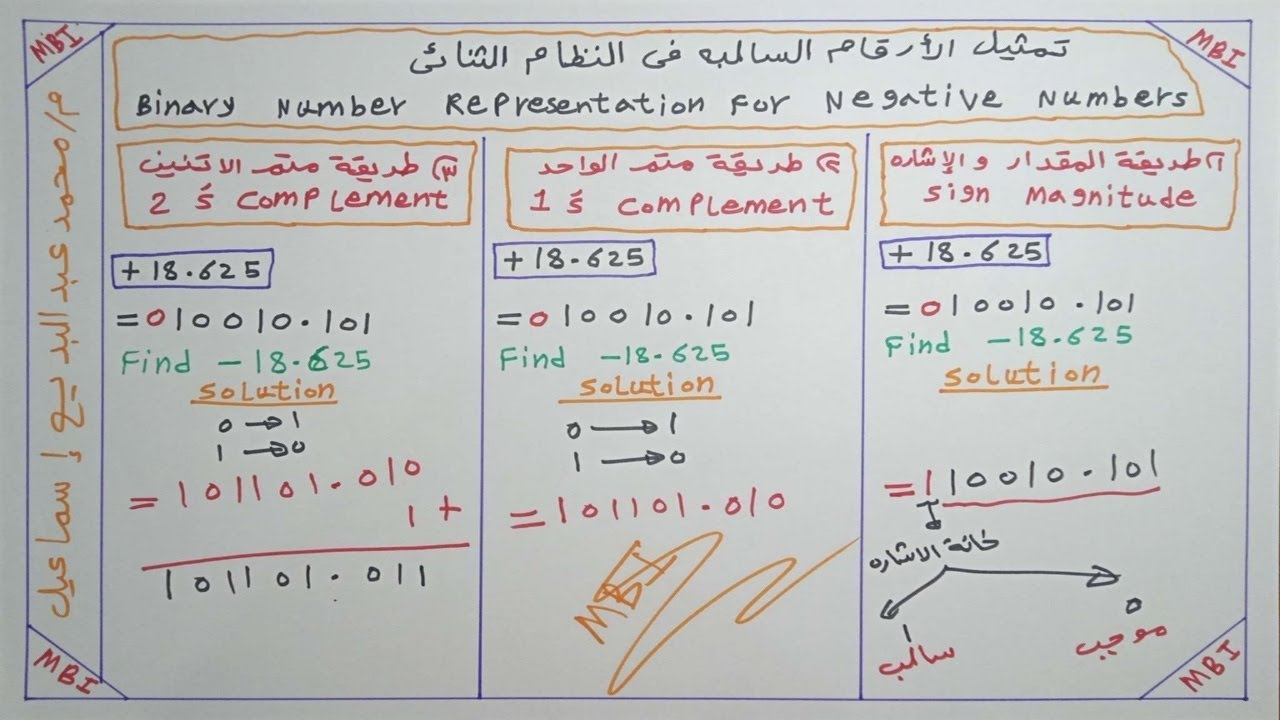 MBI
MBI
تمثيل الأرقام السالبه فى النظام الثنائى
Binary Number Representation For Negative Numbers
م/محمد عبد البديع إسماعيل
١) طريقة المقدار والإشاره
Sign Magnitude
+ 18.625
= 010010.101
Find -18.625
Solution
= 110010.101
خانة الاشاره
1
سالب
0
موجب
٢) طريقة متمم الواحد
1'S Complement
+ 18.625
= 010010.101
Find -18.625
Solution
0 → 1
1 → 0
= 101101.010
MBI
٣) طريقة متمم الاتنين
2'S Complement
+ 18.625
= 010010.101
Find -18.625
Solution
0 → 1
1 → 0
= 101101.010
1 +
101101.011
MBI
MBI